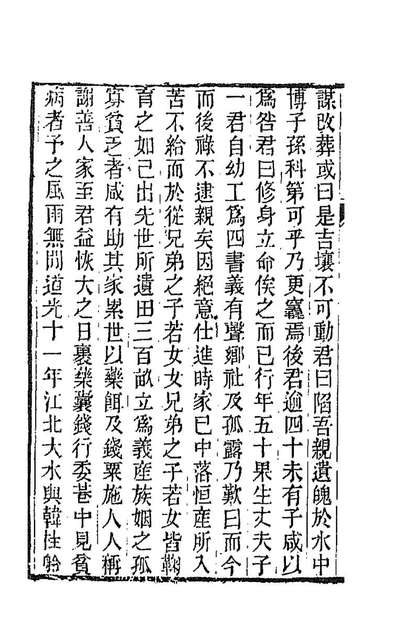 謀改葬或曰是吉壤不可動君曰陷吾親遺魄於水中
博子孫科第可乎乃更竁焉後君逾四十未有子咸以
為咎君曰修身立命俟之而已行年五十果生丈夫子
一君自幼工為四書義有聲鄉社及孤露乃歎曰而今
而後祿不逮親矣因絕意仕進時家已中落恒産所入
苦不給而於從兄弟之子若女女兄弟之子若女皆鞠
育之如己出先世所遺田三百畝立為義産族姻之孤
寡貧乏者咸有助其家累世以藥餌及錢粟施人人稱
謝善人家至君益恢大之日裹藥囊錢行委巷中見貧
病者予之風雨無間道光十一年江北大水與韓性帢